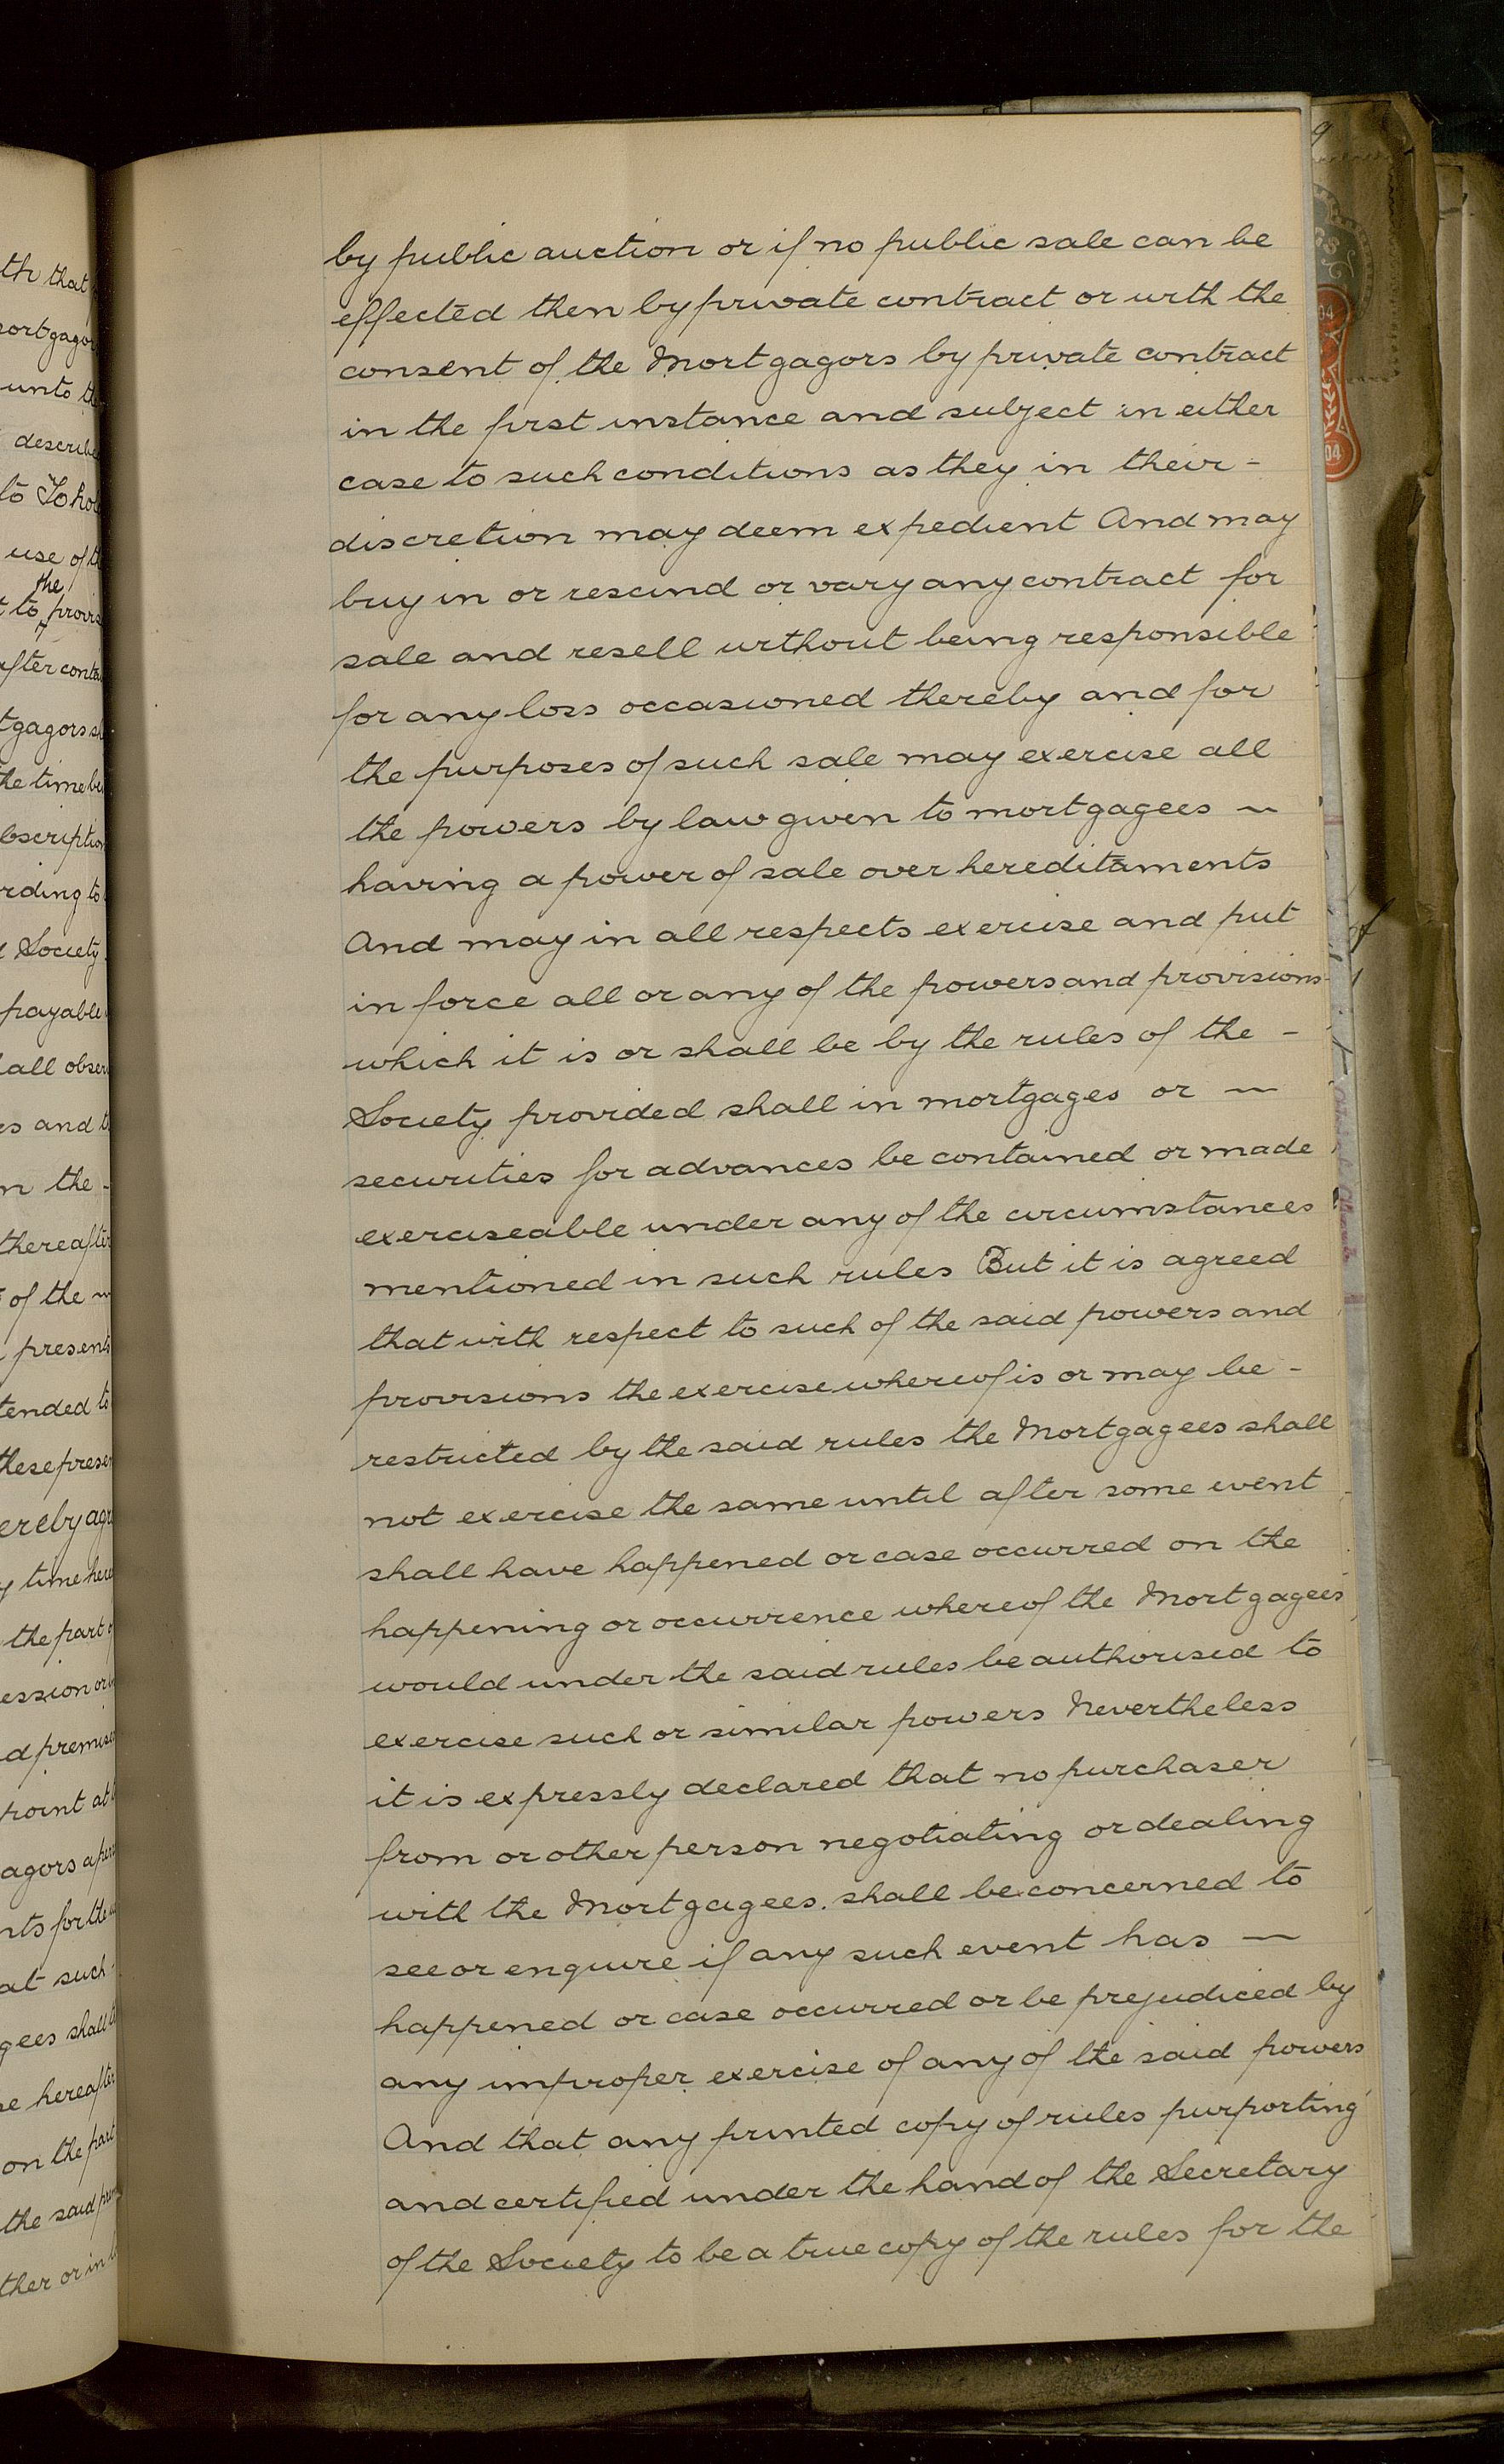 th that
ortgagor
unto the
describe
to To hol
use of th
the
t to provis
after conta
tgagors sh
the time be
bscription
rding to
d Society
payable
all obser
es and t
n the -
thereafter
of the ~
presents
tended to
these presen
ereby agre
y time here
the part o
ession or
d premise
point at
agors a per
nts for the
at such -
gees shall
e hereafter
on the part
the said prem
ther or in
by public auction or if no public sale can be
effected then by private contract or with the
consent of the Mortgagors by private contract
in the first instance and subject in either
case to such conditions as they in their -
discretion may deem expedient And may
buy in or rescind or vary any contract for
sale and resell without being responsible
for any loss occasioned thereby and for
the purposes of such sale may exercise all
the powers by law given to mortgagees ~
having a power of sale over hereditaments
And may in all respects exercise and put
in force all or any of the powers and provisions
which it is or shall be by the rules of the -
Society provided shall in mortgages or ~
securities for advances be contained or made
exerciseable under any of the circumstances
mentioned in such rules But it is agreed
that with respect to such of the said powers and
provisions the exercise whereof is or may be -
restricted by the said rules the Mortgagees shall
not exercise the same until after some event
shall have happened or case occurred on the
happening or occurrence whereof the Mortgagees
would under the said rules be authorised to
exercise such or similar powers Nevertheless
it is expressly declared that no purchaser
from or other person negotiating or dealing
with the Mortgagees shall be concerned to
see or enquire if any such event has ~
happened or case occurred or be prejudiced by
any improper exercise of any of the said powers
And that any printed copy of rules purporting
and certified under the hand of the Secretary
of the Society to be a true copy of the rules for the
9
04
04